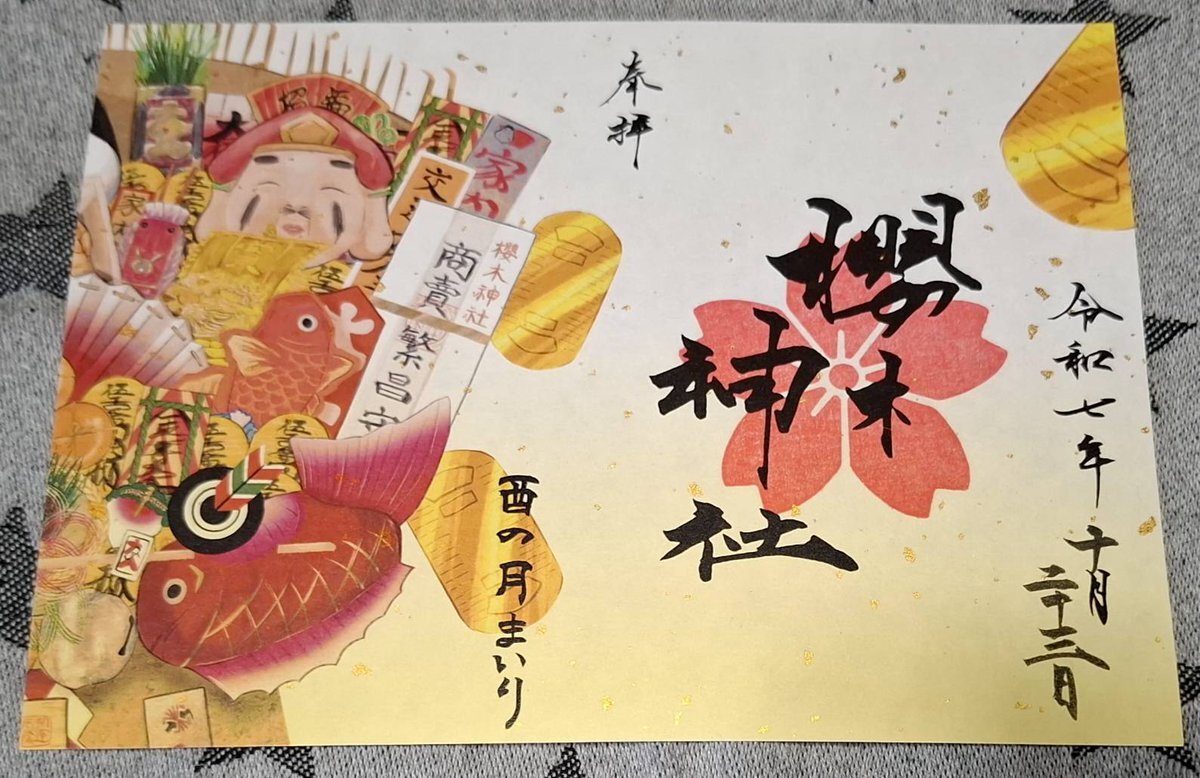 奉拝
櫻木神社
令和七年十月
二十三日
酉の月まいり
櫻木神社
商売繁昌
家
交
大入